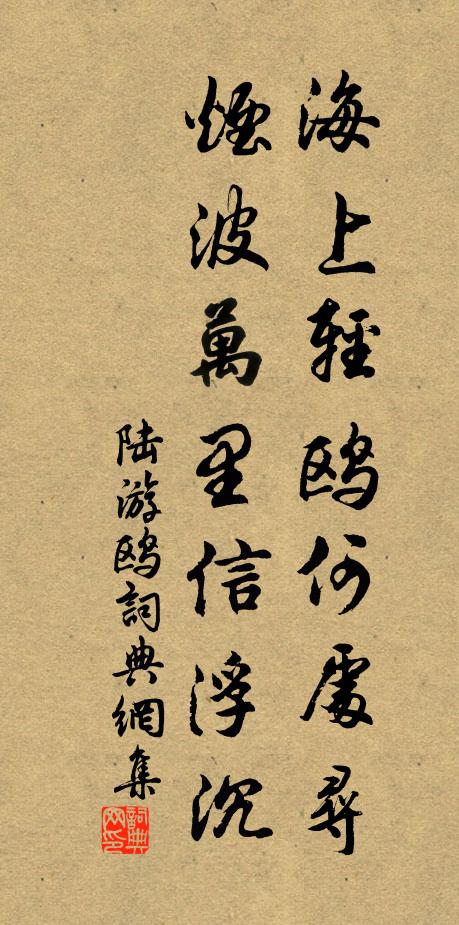 海上輕鷗何處尋
煙波萬里信浮沉
陸游鷗詞典網集
詞典網印